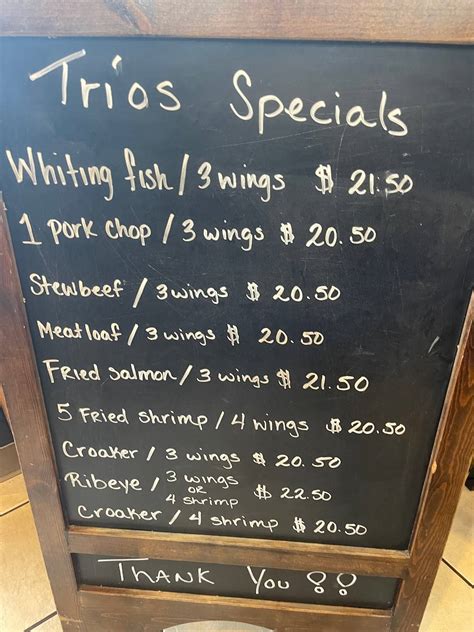 Trios Specials
Whiting fish / 3 wings $ 21.50
1 pork chop / 3 wings $ 20.50
Stewbeef / 3 wings $ 20.50
Meatloaf / 3 wings $ 20.50
Fried salmon / 3 wings $ 21.50
5 Fried shrimp / 4 wings $ 20.50
Croaker / 3 wings $ 20.50
Ribeye / 3 wings OR 4 shrimp $ 22.50
Croaker / 4 shrimp $ 20.50
THANK You !!